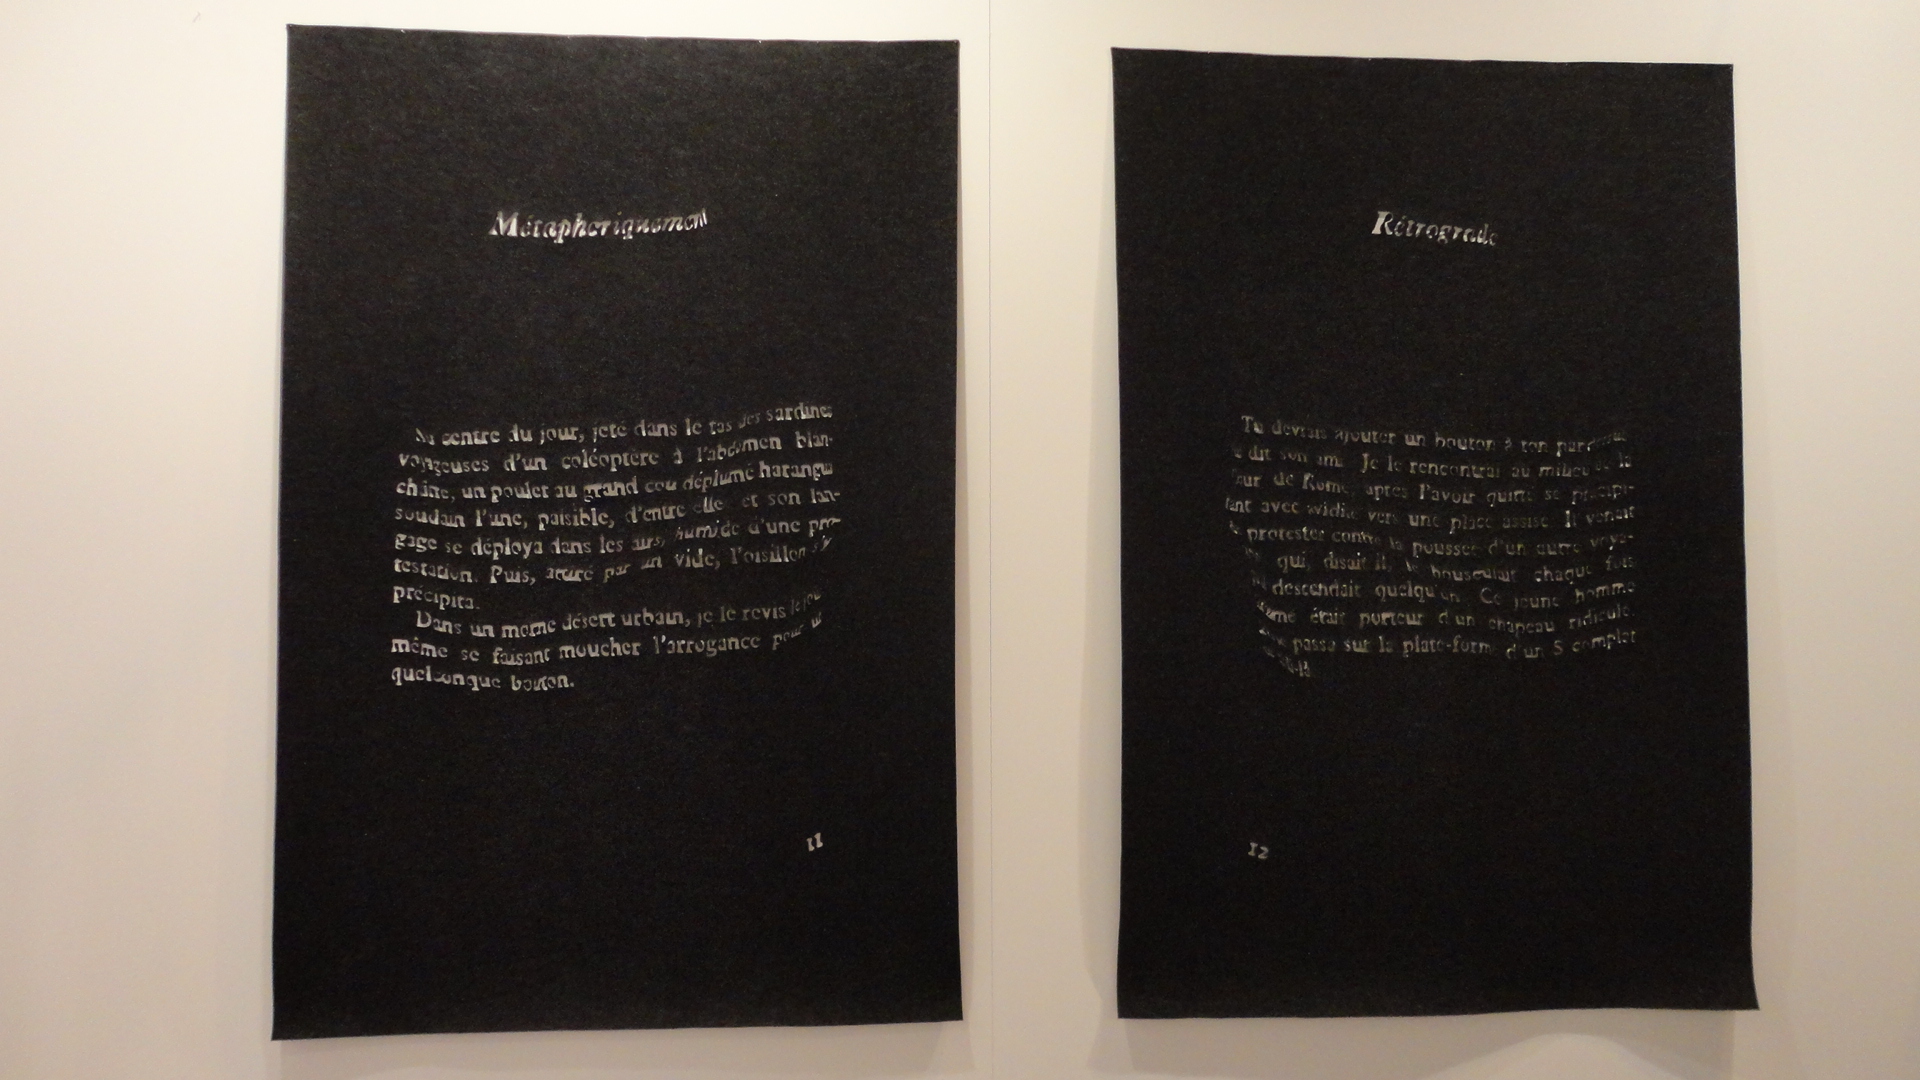 Métaphoriquement
Au centre du jour, jeté dans le tas des sardines
voyageuses d'un coléoptère à l'abdomen blan-
châtre, un poulet au grand cou déplumé harangua
soudain l'une, paisible, d'entre elles et son lan-
gage se déploya dans les airs, humide d'une pro-
testation. Puis, attiré par un vide, l'oisillon s'y
précipita.
Dans un morne désert urbain, je le revis le jour
même se faisant moucher l'arrogance pour un
quelconque bouton.
11
Rétrograde
Tu devrais ajouter un bouton à ton pardessus
dit son ami. Je le rencontrai au milieu de la
Cour de Rome, après l'avoir quitté se précipi-
tant avec avidité vers une place assise. Il venait
de protester contre la poussée d'un autre voya-
qui, disait-il, le bousculait chaque fois
descendait quelqu'un. Ce jeune homme
était porteur d'un chapeau ridicule.
passa sur la plate-forme d'un S complet
12